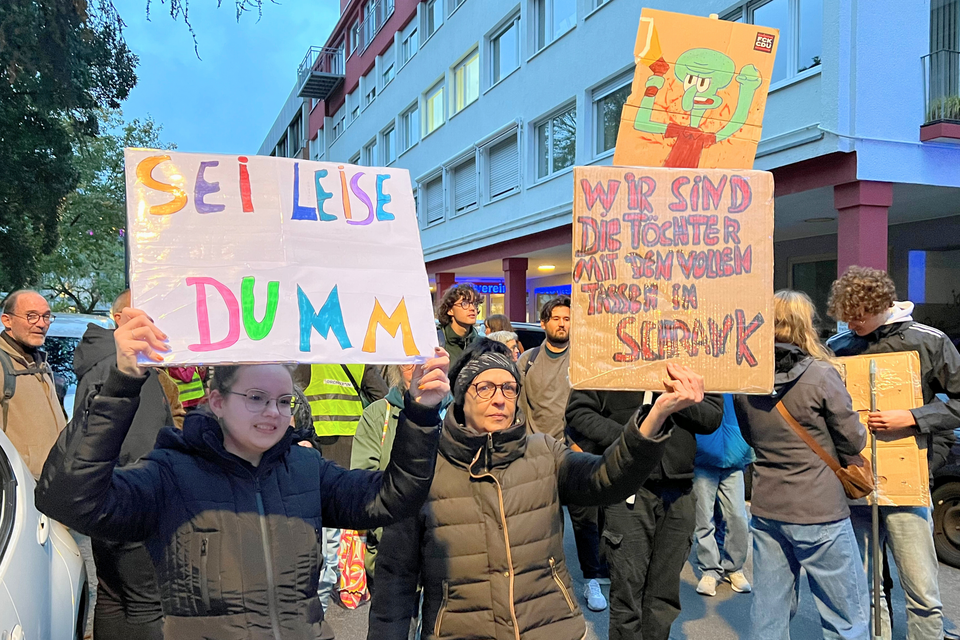 SEI LEISE
DUMM
FCK
CDU
WIR SIND
DIE TÖCHTER
MIT DEN VOLLEN
TASSEN IM
SCHRANK